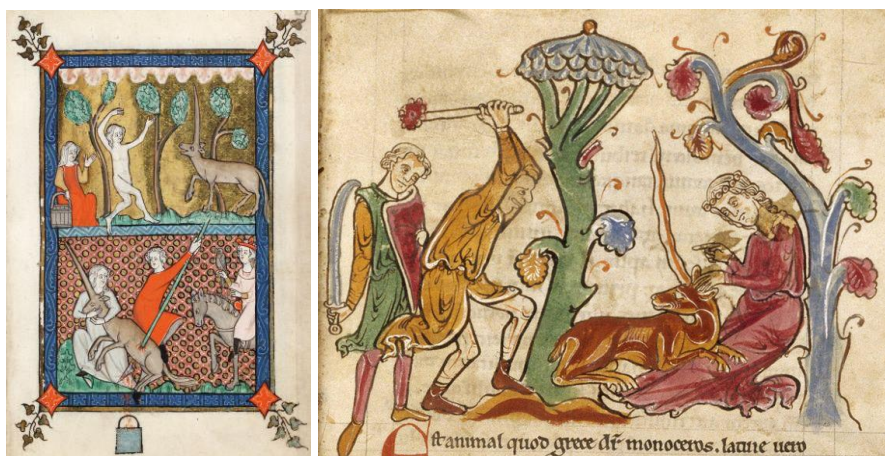 Est animal quod grece dr̄ monoceros. latine uero